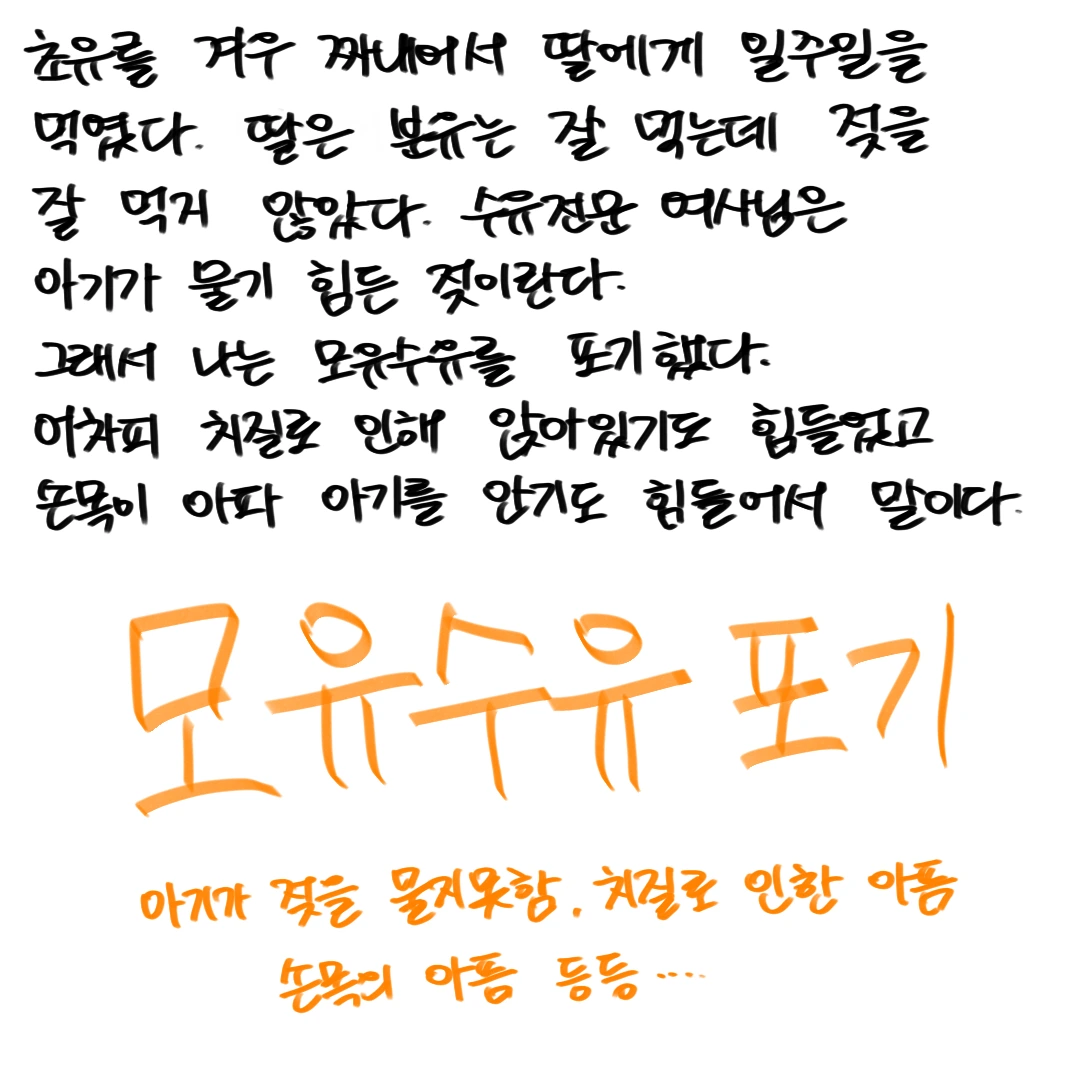 초유를 겨우 짜내어서 딸에게 일주일을
먹였다. 딸은 분유는 잘 먹는데 젖을
잘 먹지 않았다. 수유전문 여사님은
아기가 물기 힘든 젖이란다.
그래서 나는 모유수유를 포기했다.
어차피 치질로 인해 앉아있기도 힘들었고
손목이 아파 아기를 안기도 힘들어서 말이다.
모유수유 포기
아기가 젖을 물지못함, 치질로 인한 아픔
손목의 아픔 등등....